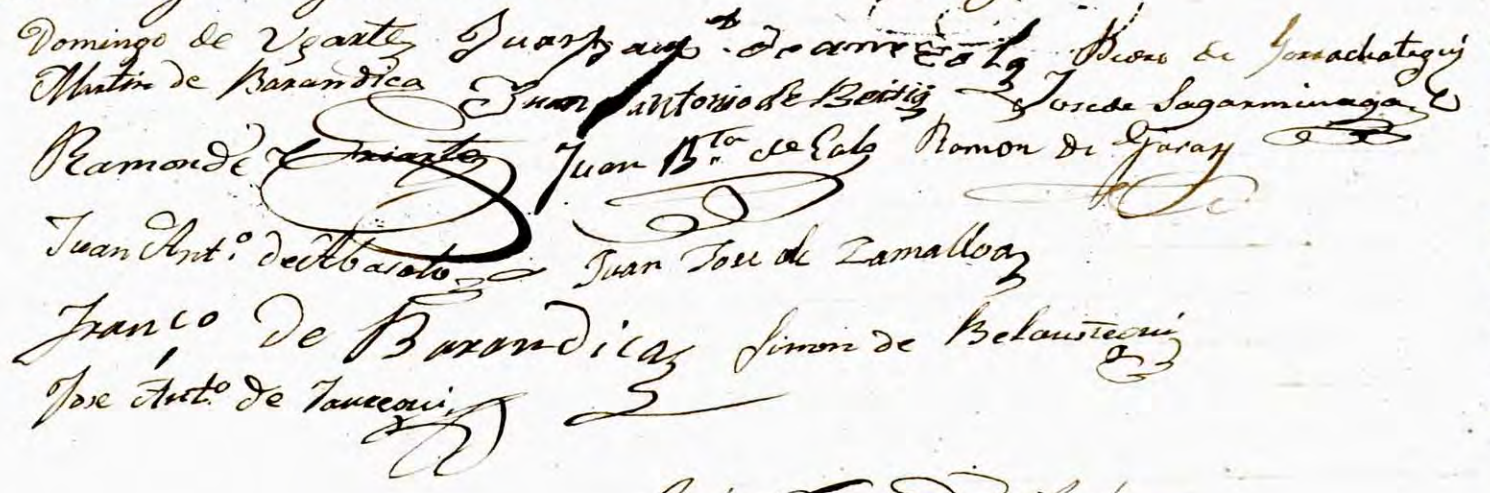 Domingo de Vgarte Juan Bauᵗ. de Pedro de Gorrachategui
Martin de Barandica Juan antonio de Beitia Jose de Sagarminaga
Ramon de Uriarte Juan B.ᵗᵃ de Ramon de Garay
Juan Ant.º de Abasolo Juan Jose de Zamalloa
Franco de Barandica Simon de Belaustegui
Jose Ant.º de Jauregui